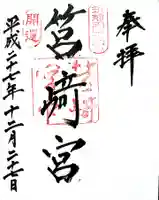 奉拝
筥崎宮
開運
平成二十七年十二月二十七日